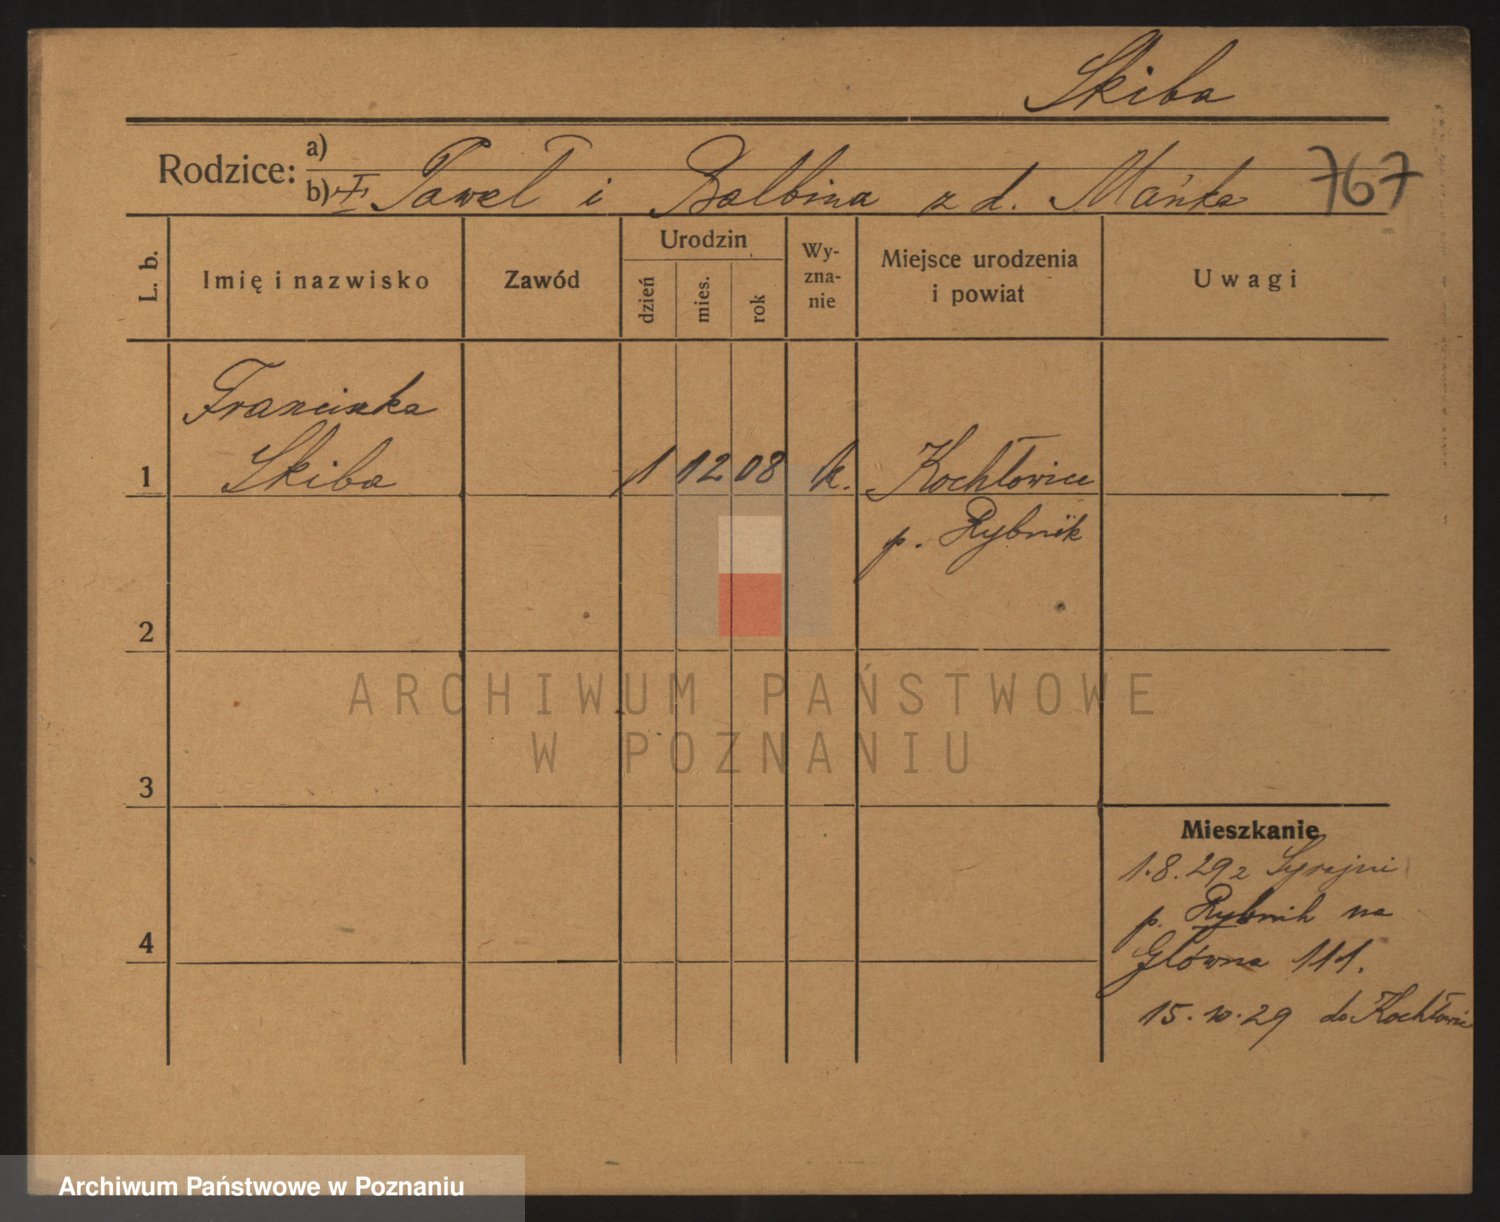 Skiba
Rodzice: a)
b) Paweł i Balbina z d. Mańka 767
L. b. Imię i nazwisko Zawód Urodzin dzień mies. rok Wy-zna-nie Miejsce urodzenia i powiat Uwagi
Franciszka
1 Skiba 1 12 08 k. Kochłowice
p. Rybnik
2
3
Mieszkanie
1.8.29 z
p. Rybnik na
4 Główna 111.
15.10.29 do Kochłowic
ARCHIWUM PAŃSTWOWE
W POZNANIU
Archiwum Państwowe w Poznaniu